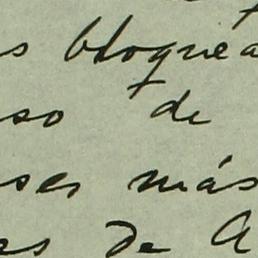 s bloquea
so de
ses más
es de A